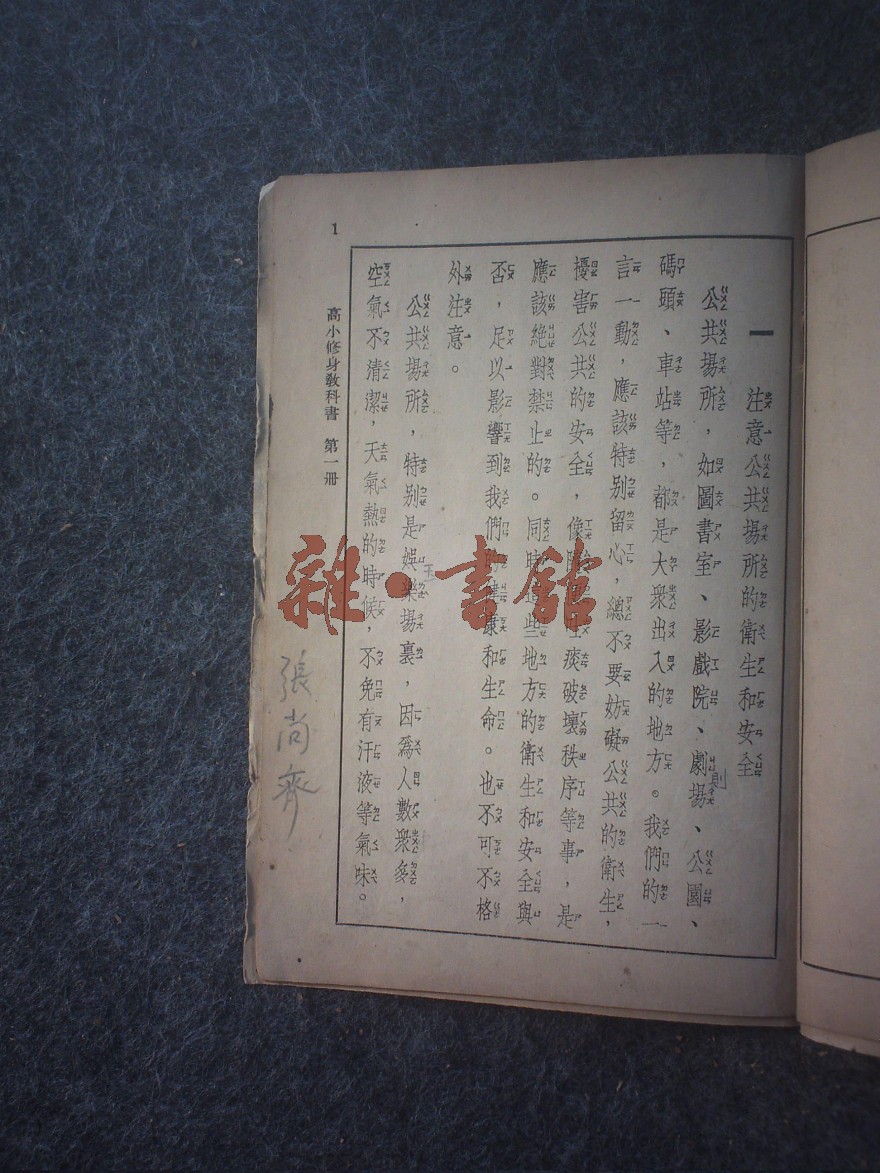 一　注意公共場所的衛生和安全
公共場所，如圖書室、影戲院、劇場、公園、
碼頭、車站等，都是大衆出入的地方。我們的一
言一動，應該特別留心，總不要妨礙公共的衛生，
擾害公共的安全，像隨痰破壞秩序等事，是
應該絕對禁止的。同時這些地方的衛生和安全與
否，足以影響到我們的健康和生命。也不可不格
外注意。
公共場所，特別是娛樂場裏，因爲人數衆多，
空氣不清潔，天氣熱的時候，不免有汗液等氣味。
1
高小修身敎科書　第一册
則
玉
張尚齊
雜·書館